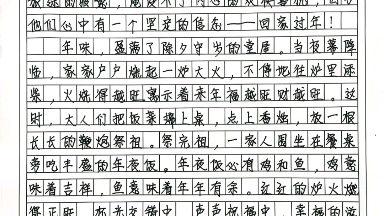 他们心中有一个坚定的信念——回家过年！
年味，盈满了除夕守岁的童居。当夜幕降
临，家家户户烧起一炉大火，不停地往炉里添
柴，火烧得越旺寓示着来年福越旺财越旺。这
时，大人们把饭菜端上桌，点上香烛，放一根
长长的鞭炮祭祖。祭完祖，一家人围坐在餐桌
旁吃丰盛的年夜饭。年夜饭必有鸡和鱼，鸡意
味着吉祥，鱼意味着年年有余。红红的炉火燃
得正旺，杯光交错中，声声祝福中，幸福的